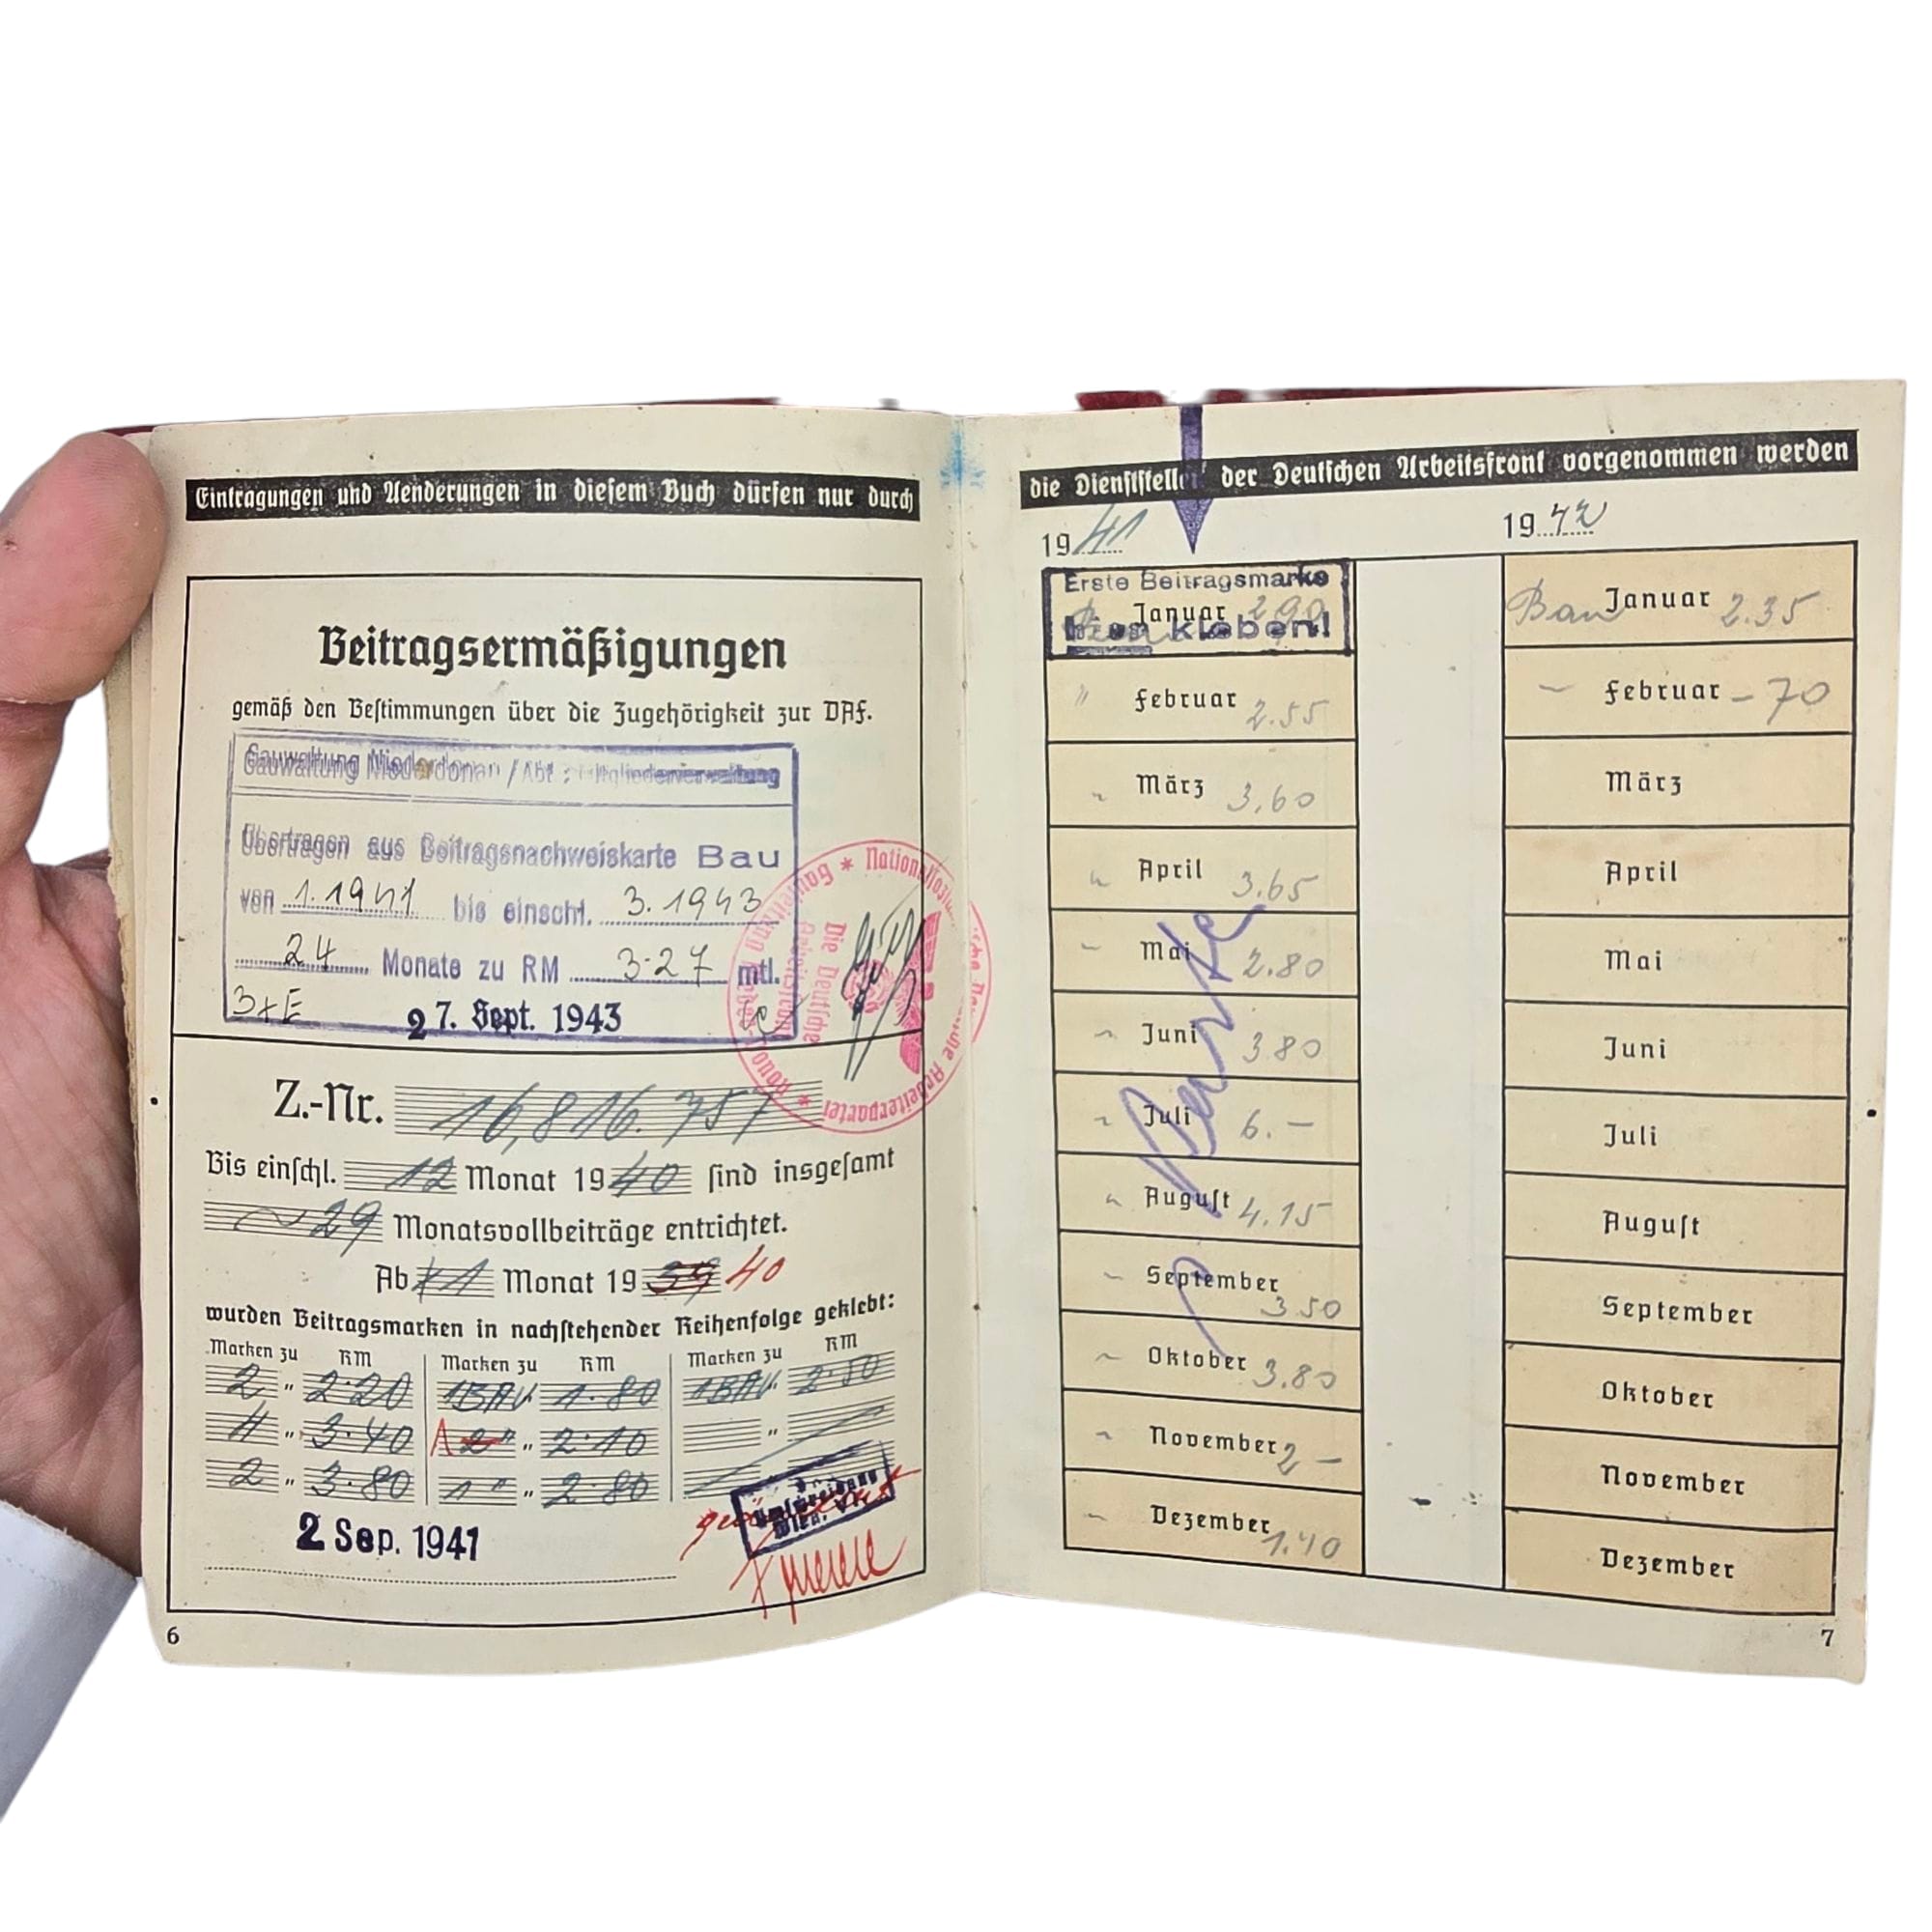 Eintragungen und Aenderungen in diesem Buch dürfen nur durch
Beitragsermäßigungen
gemäß den Bestimmungen über die Zugehörigkeit zur DAF.
Gauwaltung Niederdonau / Abt.: Mitgliederverwaltung
Übertragen aus Beitragsnachweiskarte Bau
von 1.1941 bis einschl. 3.1943
24 Monate zu RM 3.27 mtl.
3+E
27. Sept. 1943
Nationalsozialistische Deutsche Arbeiterpartei
Die Deutsche
Arbeitsfront
Z.-Nr. 16,816.757
Bis einschl. 12 Monat 1940 sind insgesamt
29 Monatsvollbeiträge entrichtet.
Ab 1 Monat 19 39 40
wurden Beitragsmarken in nachstehender Reihenfolge geklebt:
Marken zu RM Marken zu RM Marken zu RM
2 " 2.20 1 BAU. 1.80 1 BAU. 2.50
4 " 3.40 1 2 " " 2.10 "
2 " 3.80 1 " " 2.80
2 Sep. 1941
Wien,
6
die Dienststellen der Deutschen Arbeitsfront vorgenommen werden
1941
Erste Beitragsmarke
Januar 2.90
hier kleben!
" Februar 2.55
März 3.60
April 3.65
Mai 2.80
Juni 3.80
Juli 6.–
August 4.15
September 3.50
Oktober 3.80
November 2.–
Dezember 1.40
1942
Bau Januar 2.35
Februar –70
März
April
Mai
Juni
Juli
August
September
Oktober
November
Dezember
7